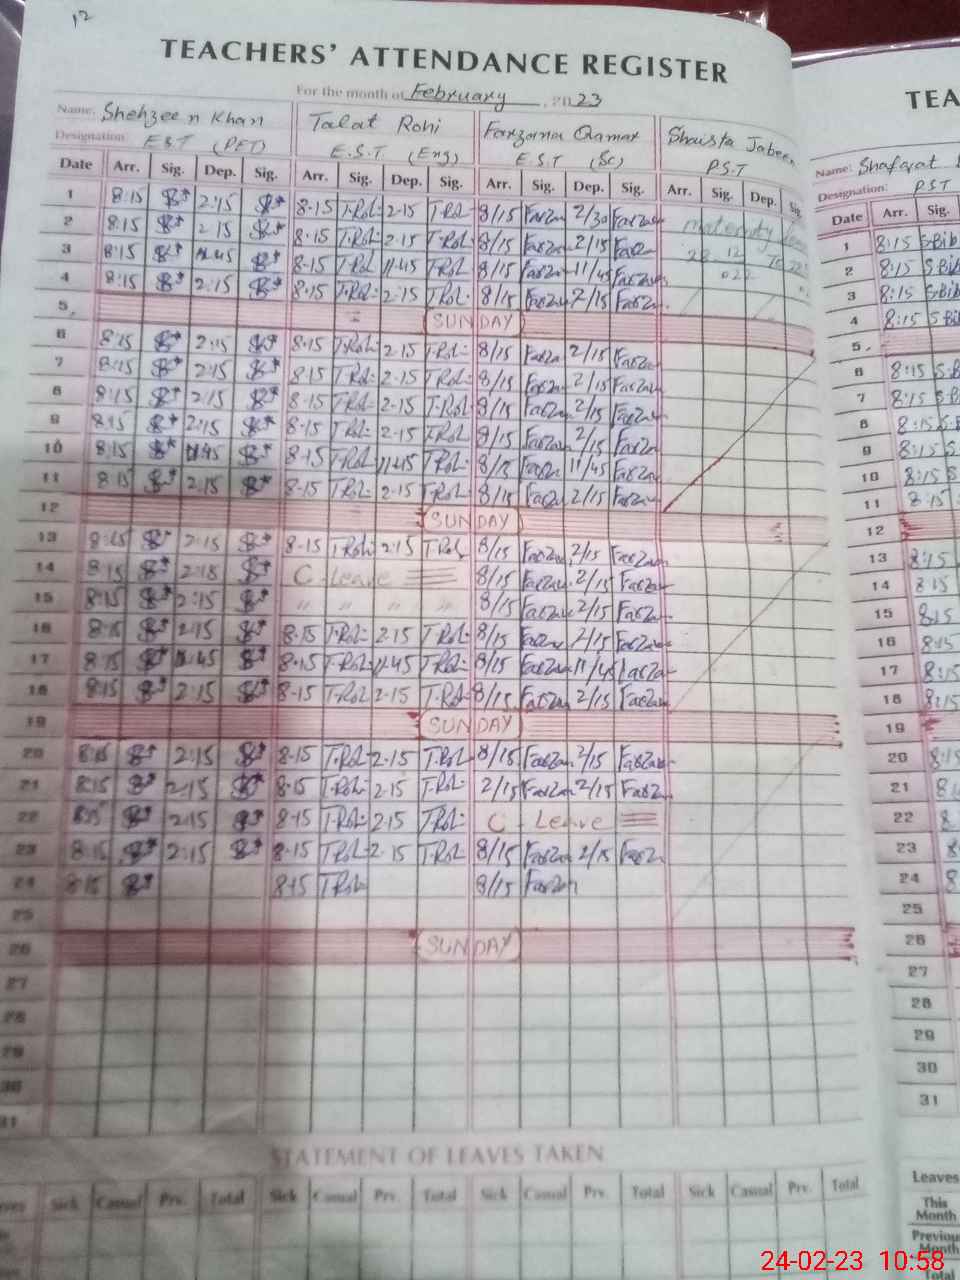 12
TEACHERS' ATTENDANCE REGISTER
For the month of February, 2023
Name: Shehzeen Khan Talat Rohi Farzana Qamar Shaista Jabeen
Designation: E.S.T (PET) E.S.T. (Eng) E.S.T (Sc) P.S.T
Date Arr. Sig. Dep. Sig. Arr. Sig. Dep. Sig. Arr. Sig. Dep. Sig. Arr. Sig. Dep. Sig.
1 8:15 2:15 8-15 T-Rol- 2-15 T-Rol 8/15 Farzan 2/30 Farzan
2 8:15 2:15 8-15 T-Rol- 2-15 T-Rol- 8/15 Farzan 2/15 Farzan maternity leave
3 8:15 11:45 8-15 T-Rol 11-45 T-Rol- 8/15 Farzan 11/45 Farzan
4 8:15 2:15 8-15 T-Rol- 2-15 T-Rol- 8/15 Farzan 2/15 Farzan
5 SUNDAY
6 8:15 2:15 8-15 T-Rol- 2-15 T-Rol- 8/15 Farzan 2/15 Farzan
7 8:15 2:15 8-15 T-Rol- 2-15 T-Rol- 8/15 Farzan 2/15 Farzan
8 8:15 2:15 8-15 T-Rol- 2-15 T-Rol- 8/15 Farzan 2/15 Farzan
9 8:15 2:15 8-15 T-Rol- 2-15 T-Rol- 8/15 Farzan 2/15 Farzan
10 8:15 11:45 8-15 T-Rol- 11-45 T-Rol- 8/15 Farzan 11/45 Farzan
11 8:15 2:15 8-15 T-Rol- 2-15 T-Rol- 8/15 Farzan 2/15 Farzan
12 SUNDAY
13 8:15 2:15 8-15 T-Rol- 2:15 T-Rol 8/15 Farzan 2/15 Farzan
14 8:15 2:15 C-Leave 8/15 Farzan 2/15 Farzan
15 8:15 2:15 " " " " 8/15 Farzan 2/15 Farzan
16 8:15 2:15 8-15 T-Rol- 2-15 T-Rol- 8/15 Farzan 2/15 Farzan
17 8:15 11:45 8-15 T-Rol- 11-45 T-Rol- 8/15 Farzan 11/45 Farzan
18 8:15 2:15 8-15 T-Rol- 2-15 T-Rol- 8/15 Farzan 2/15 Farzan
19 SUNDAY
20 8:15 2:15 8-15 T-Rol- 2-15 T-Rol- 8/15 Farzan 2/15 Farzan
21 8:15 2:15 8-15 T-Rol- 2-15 T-Rol- 2/15 Farzan 2/15 Farzan
22 8:15 2:15 8-15 T-Rol- 2-15 T-Rol- C - Leave
23 8:15 2:15 8-15 T-Rol- 2-15 T-Rol- 8/15 Farzan 2/15 Farzan
24 8:15 8-15 T-Rol 8/15 Farzan
25
26 SUNDAY
27
28
29
30
31
STATEMENT OF LEAVES TAKEN
Sick Casual Prv. Total Sick Casual Prv. Total Sick Casual Prv. Total Sick Casual Prv. Total
TEA
Name: Shafqat
Designation: PST
Date Arr. Sig.
1 8:15 S-Bib
2 8:15 S-Bib
3 8:15 S-Bib
4 8:15 S Bib
5
6 8:15 S-B
7 8:15 S-B
8 8:15 S-B
9 8:15 S
10 8:15 S
11 8:15
12
13 8:15
14 8:15
15 8:15
16 8:15
17 8:15
18 8:15
19
20 8:15
21 8
22 8
23 8
24 8
25
26
27
28
29
30
31
Leaves
This
Month
Previous
Month
Total
24-02-23 10:58